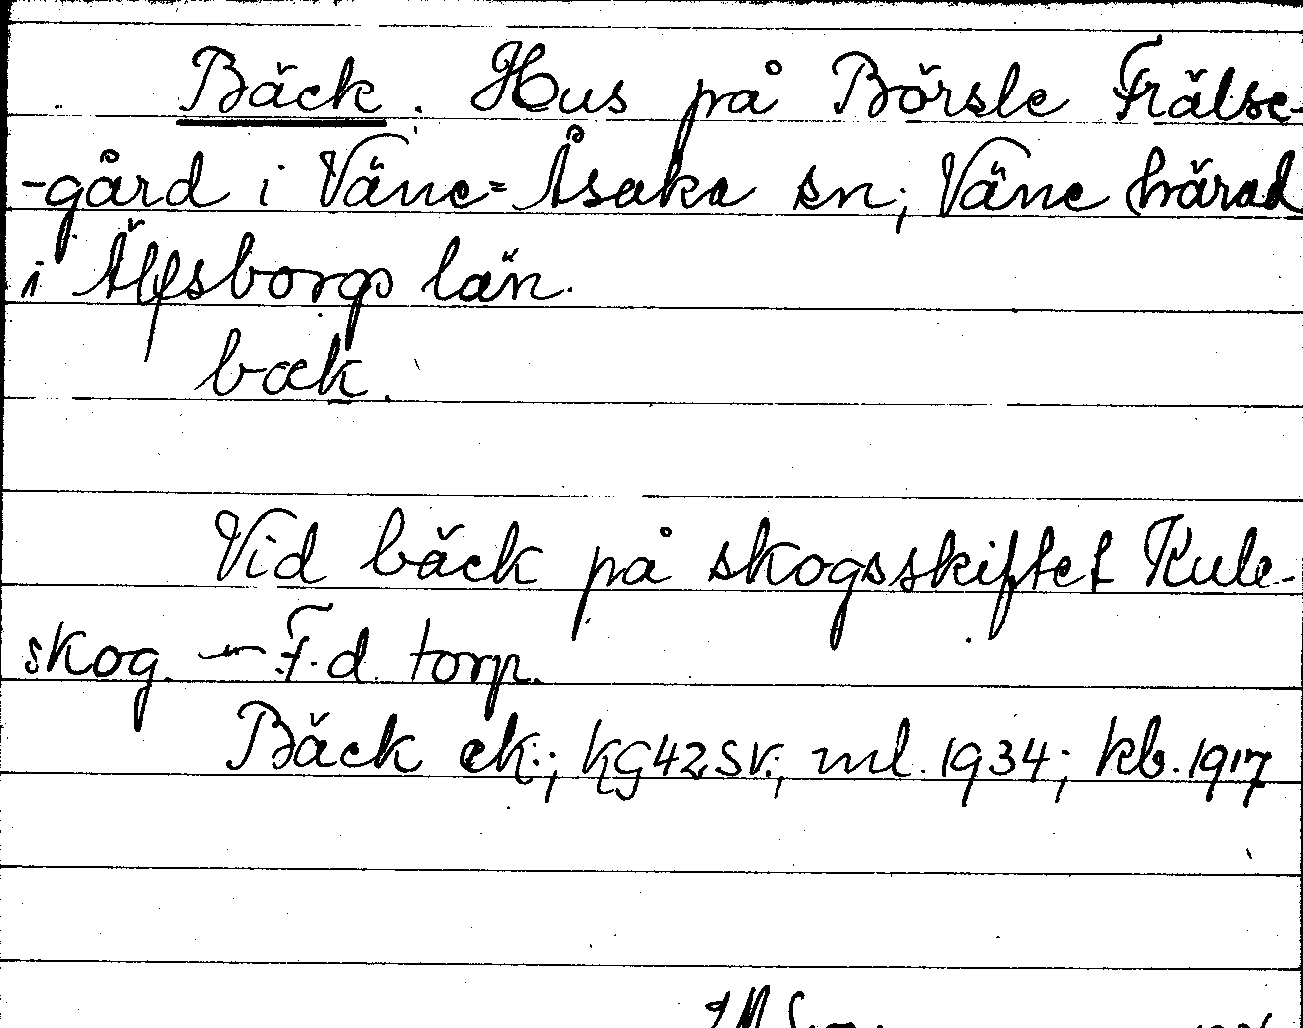 Bäck. Hus på Börsle Frälse-
-gård i Väne-Åsaka sn; Väne härad
i Älfsborgs län.
bæk.
Vid bäck på skogsskiftet Kule-
skog. — F.d. torp.
Bäck ek.; kg 42 sv.; ml. 1934; kb. 1917